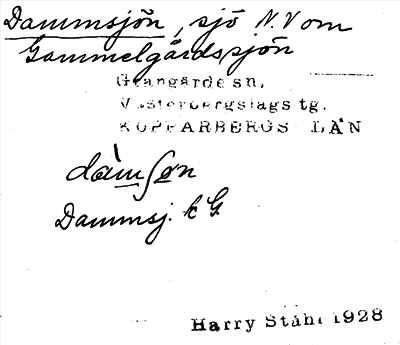 Dammsjön, sjö N.V om
Gammelgårdssjön
Grangärde sn.
Västerbergslags tg.
KOPPARBERGS LÄN
dàmʃøn
Dammsj. k G.
Harry Ståhl 1928